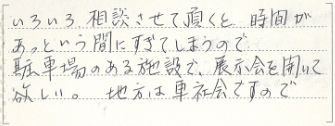 いろいろ相談させて頂くと 時間が
あっという間にすぎてしまうので
駐車場のある施設で、展示会を開いて
欲しい。 地方は車社会ですので